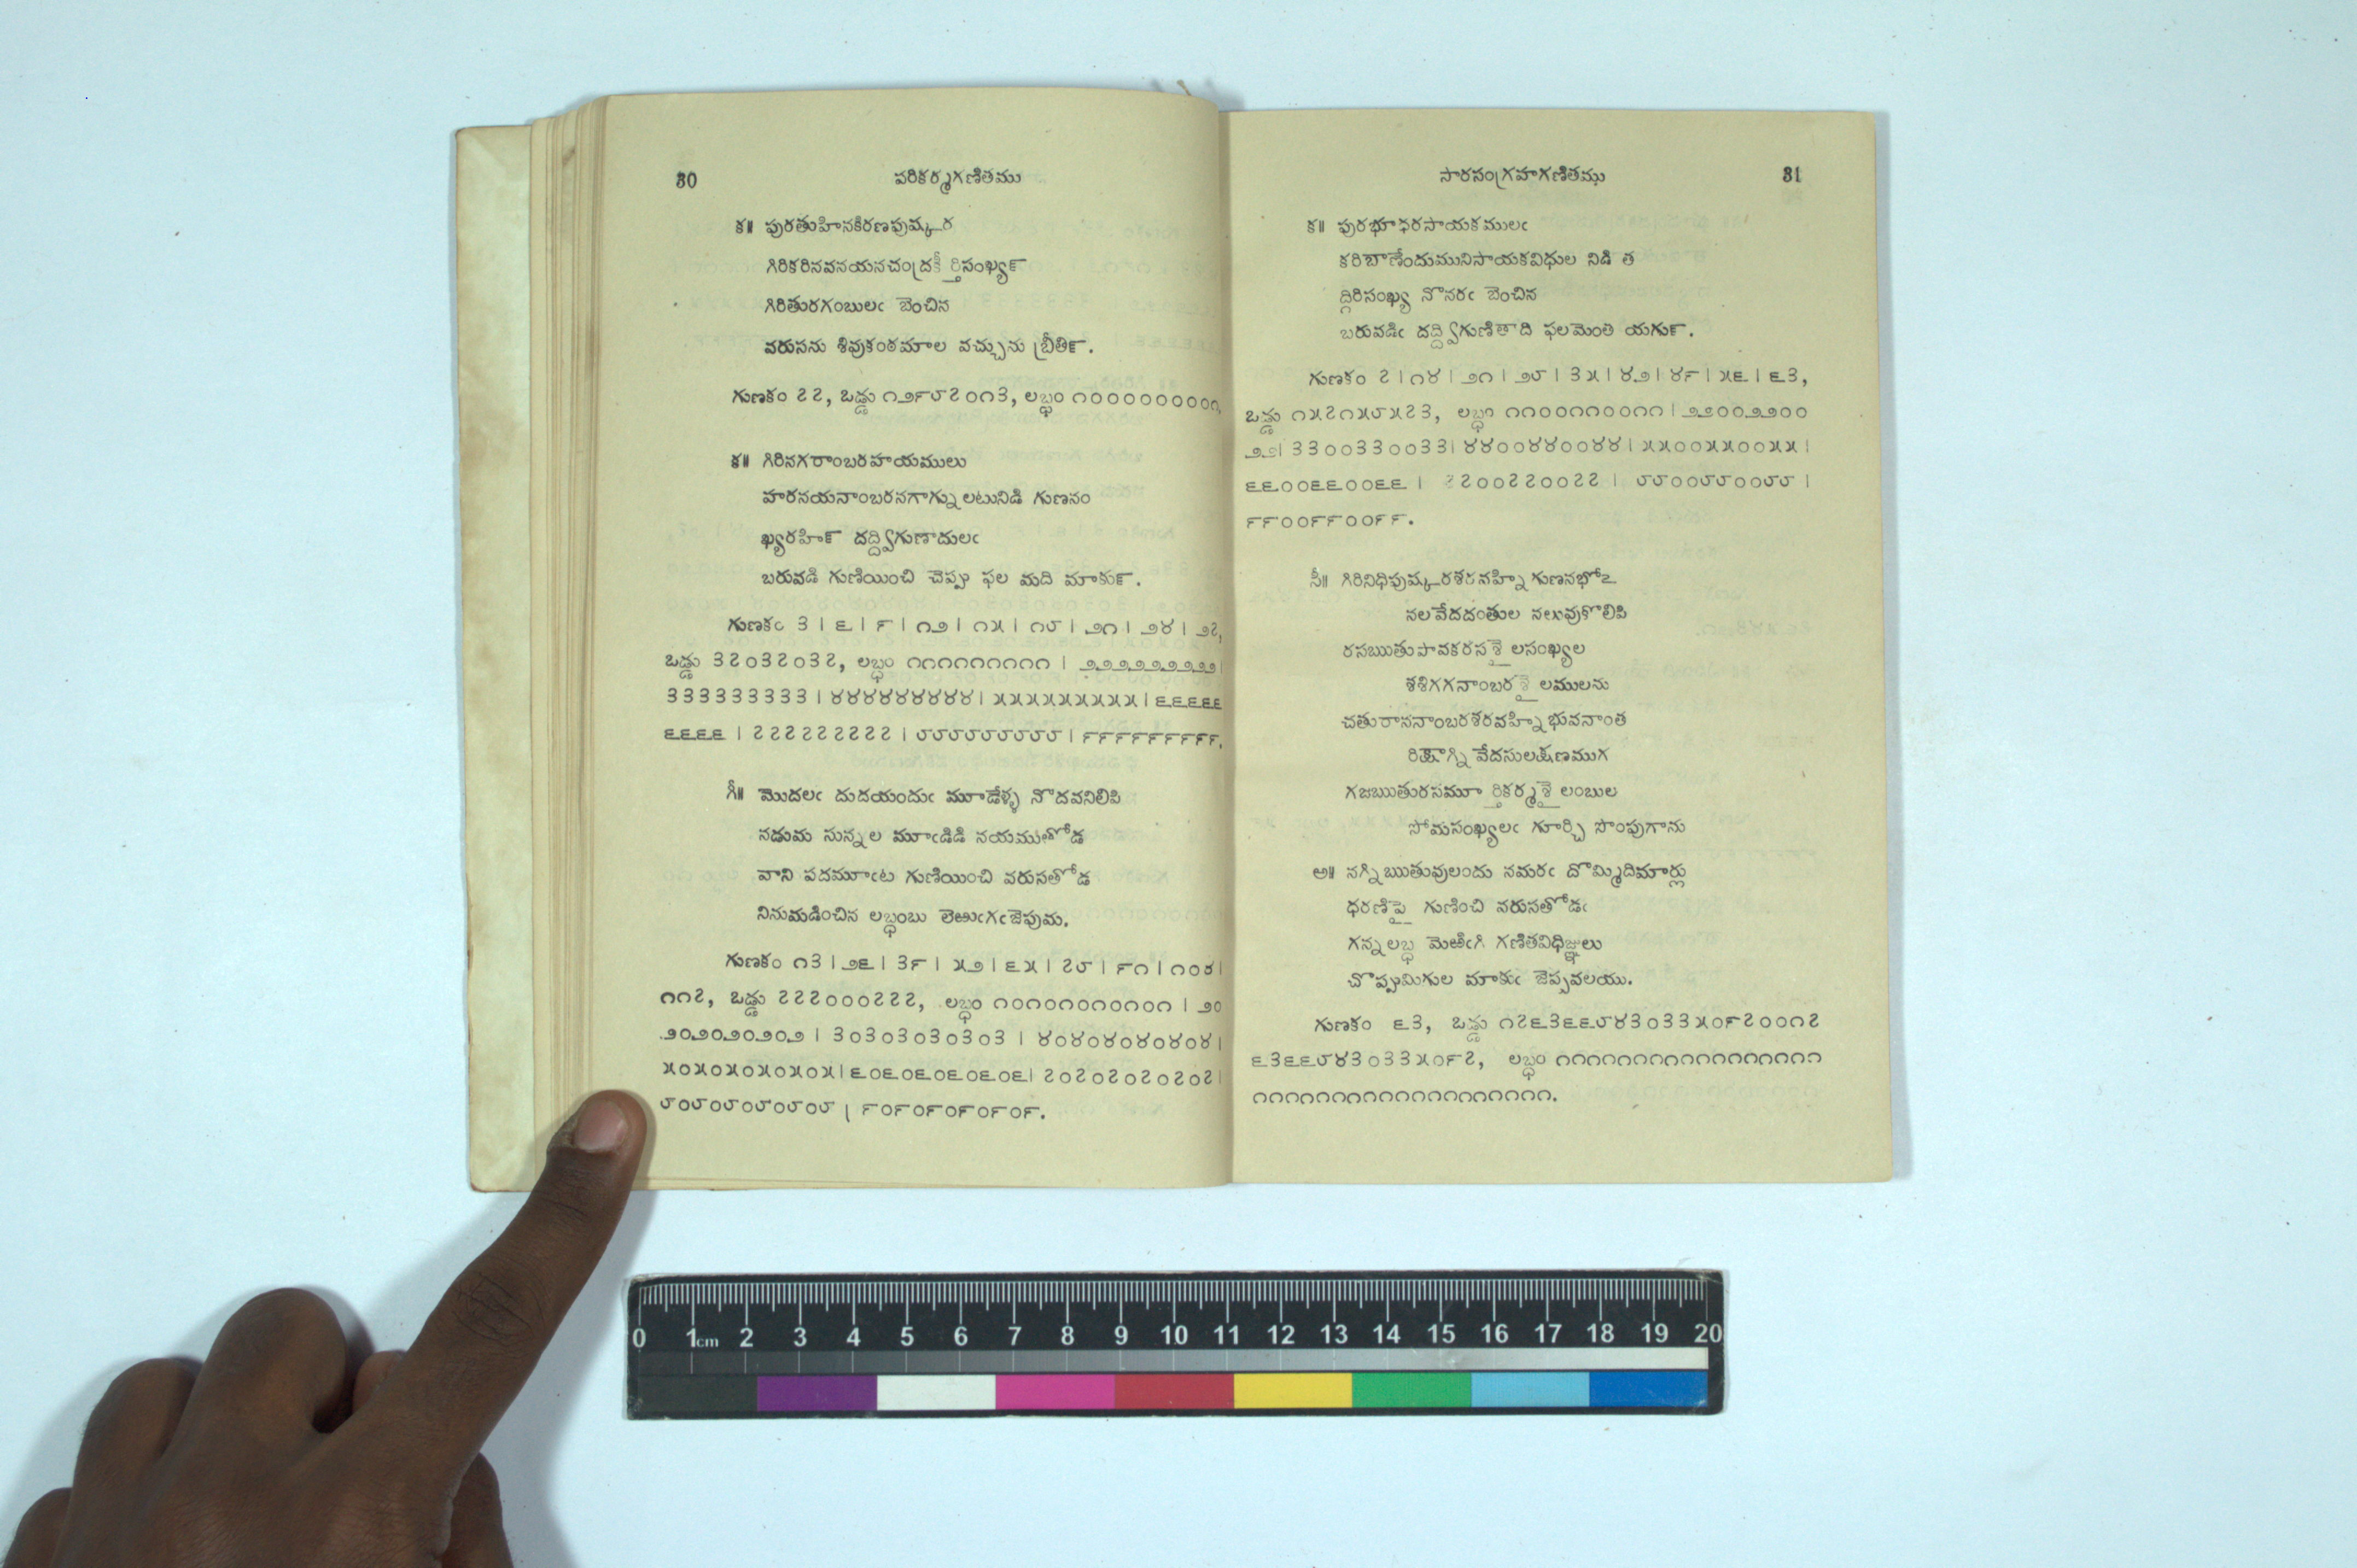 30 పరికర్మగణితము
క॥ పురతుహినకిరణపుష్కర
గిరికరినవనయనచంద్రకీర్తిసంఖ్య౯
గిరితురగంబులఁ బెంచిన
వరుసను శివుకంఠమాల వచ్చును బ్రీతి౯.
గుణకం ౭౭, ఒడ్డు ౧౨౯౮౭౦౧౩, లబ్ధం ౧౦౦౦౦౦౦౦౦౧.
క॥ గిరినగరాంబరహయములు
హరనయనాంబరనగాగ్ను లటునిడి గుణసం
ఖ్యరహి౯ దద్ద్విగుణాదులఁ
బరువడి గుణియించి చెప్పు ఫల మది మాకు౯.
గుణకం ౩ | ౬ | ౯ | ౧౨ | ౧౫ | ౧౮ | ౨౧ | ౨౪ | ౨౭,
ఒడ్డు ౩౭౦౩౭౦౩౭, లబ్ధం ౧౧౧౧౧౧౧౧౧ | ౨౨౨౨౨౨౨౨౨ |
౩౩౩౩౩౩౩౩౩ | ౪౪౪౪౪౪౪౪౪ | ౫౫౫౫౫౫౫౫౫ | ౬౬౬౬౬
౬౬౬౬ | ౭౭౭౭౭౭౭౭౭ | ౮౮౮౮౮౮౮౮౮ | ౯౯౯౯౯౯౯౯౯.
గీ॥ మొదలఁ దుదయందుఁ మూడేళ్ళ నొదవనిలిపి
నడుమ సున్నల మూఁడిడి నయముతోడ
వాని పదమూఁట గుణియించి వరుసతోడ
నినుమడించిన లబ్ధంబు లెఱుఁగఁజెపుమ.
గుణకం ౧౩ | ౨౬ | ౩౯ | ౫౨ | ౬౫ | ౭౮ | ౯౧ | ౧౦౪ |
౧౧౭, ఒడ్డు ౭౭౭౦౦౦౭౭౭, లబ్ధం ౧౦౧౦౧౦౧౦౧౦౧ | ౨౦
౨౦౨౦౨౦౨౦౨ | ౩౦౩౦౩౦౩౦౩౦౩ | ౪౦౪౦౪౦౪౦౪౦౪ |
౫౦౫౦౫౦౫౦౫౦౫ | ౬౦౬౦౬౦౬౦౬౦౬ | ౭౦౭౦౭౦౭౦౭౦౭ |
౮౦౮౦౮౦౮౦౮౦౮ | ౯౦౯౦౯౦౯౦౯౦౯.
సారసంగ్రహగణితము 31
క॥ పురభూధరసాయకములఁ
కరిబాణేందుమునిసాయకవిధుల నిడి త
ద్గిరిసంఖ్య నొనరఁ బెంచిన
బరువడిఁ దద్ద్విగుణితాది ఫలమెంతి యగు౯.
గుణకం ౭ | ౧౪ | ౨౧ | ౨౮ | ౩౫ | ౪౨ | ౪౯ | ౫౬ | ౬౩,
ఒడ్డు ౧౫౭౧౫౮౫౭౩, లబ్ధం ౧౧౦౦౧౧౦౦౧౧ | ౨౨౦౦౨౨౦౦
౨౨ | ౩౩౦౦౩౩౦౦౩౩ | ౪౪౦౦౪౪౦౦౪౪ | ౫౫౦౦౫౫౦౦౫౫ |
౬౬౦౦౬౬౦౦౬౬ | ౭౭౦౦౭౭౦౦౭౭ | ౮౮౦౦౮౮౦౦౮౮ |
౯౯౦౦౯౯౦౦౯౯.
సీ॥ గిరినిధిపుష్కరశరవహ్ని గుణనభోఽ
నలవేదదంతుల నలువుకొలిపి
రసఋతుపావకరసశైలసంఖ్యల
శశిగగనాంబరశైలములను
చతురాననాంబరశరవహ్ని భువనాంత
రిక్షాగ్ని వేదసులక్షణముగ
గజఋతురసమూర్తికర్మశైలంబుల
సోమసంఖ్యలఁ గూర్చి సొంపుగాను
అ॥ నగ్నిఋతువులందు నమరఁ దొమ్మిదిమార్లు
ధరణిపై గుణించి వరుసతోడఁ
గన్న లబ్ధ మెఱిఁగి గణితవిధిజ్ఞులు
చొప్పుమిగుల మాకుఁ జెప్పవలయు.
గుణకం ౬౩, ఒడ్డు ౧౭౬౩౬౬౮౪౩౦౩౩౫౦౯౭౦౦౧౭
౬౩౬౬౮౪౩౦౩౩౫౦౯౭, లబ్ధం ౧౧౧౧౧౧౧౧౧౧౧౧౧౧౧౧౧
౧౧౧౧౧౧౧౧౧౧౧౧౧౧౧౧౧౧౧.
0 1cm 2 3 4 5 6 7 8 9 10 11 12 13 14 15 16 17 18 19 20